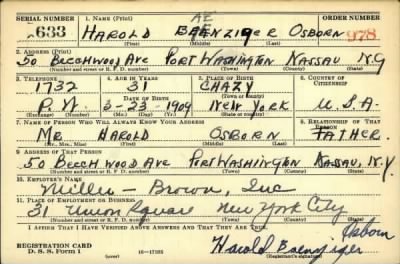 SERIAL NUMBER 1. NAME (Print) ORDER NUMBER
AE
2633 HAROLD BAENZIGER OSBORN 978
(First) (Middle) (Last)
2. ADDRESS (Print)
50 BEECHWOOD AVE PORT WASHINGTON NASSAU N.Y
(Number and street or R. F. D. number) (Town) (County) (State)
3. TELEPHONE 4. AGE IN YEARS 5. PLACE OF BIRTH 6. COUNTRY OF CITIZENSHIP
1732 31 CHAZY
DATE OF BIRTH (Town or county)
P.W. 5-23-1909 NEW YORK U.S.A.
(Exchange) (Number) (Mo.) (Day) (Yr.) (State or country)
7. NAME OF PERSON WHO WILL ALWAYS KNOW YOUR ADDRESS 8. RELATIONSHIP OF THAT PERSON
MR. HAROLD OSBORN FATHER.
(Mr., Mrs., Miss) (First) (Middle) (Last)
9. ADDRESS OF THAT PERSON
50 BEECHWOOD AVE PORT WASHINGTON NASSAU, N.Y.
(Number and street or R. F. D. number) (Town) (County) (State)
10. EMPLOYER'S NAME
Miller - Brown, Inc
11. PLACE OF EMPLOYMENT OR BUSINESS
31 Union Square New York City
(Number and street or R. F. D. number) (Town) (County) (State)
I AFFIRM THAT I HAVE VERIFIED ABOVE ANSWERS AND THAT THEY ARE TRUE.
Osborn
REGISTRATION CARD Harold Baenziger
D. S. S. Form 1 (over) (Registrant's signature)